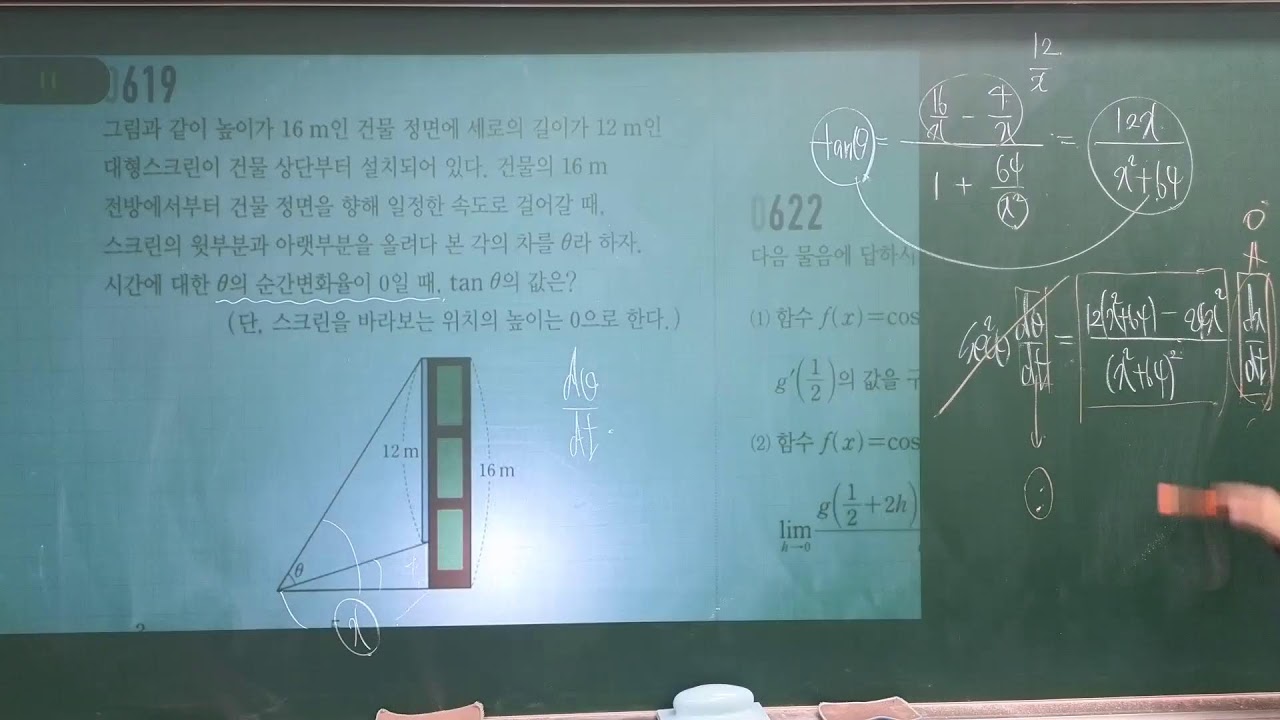 0619
그림과 같이 높이가 16 m인 건물 정면에 세로의 길이가 12 m인
대형스크린이 건물 상단부터 설치되어 있다. 건물의 16 m
전방에서부터 건물 정면을 향해 일정한 속도로 걸어갈 때,
스크린의 윗부분과 아랫부분을 올려다 본 각의 차를 θ라 하자.
시간에 대한 θ의 순간변화율이 0일 때, tan θ의 값은?
(단, 스크린을 바라보는 위치의 높이는 0으로 한다.)
12 m
16 m
θ
4
x
dθ/dt
0622
다음 물음에 답하시
⑴ 함수 f(x)=cos
g′(1/2)의 값을 구
⑵ 함수 f(x)=cos
lim h→0 g(1/2+2h)
12/x
tanθ = (16/x − 4/x)/(1 + 64/x²) = 12x/(x²+64)
0
sec²θ dθ/dt = (12(x²+64) − 24x²)/(x²+64)² dx/dt